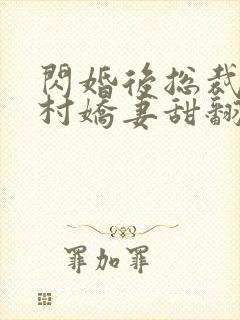 閃婚後總裁
村嬌妻甜翻
罪加罪